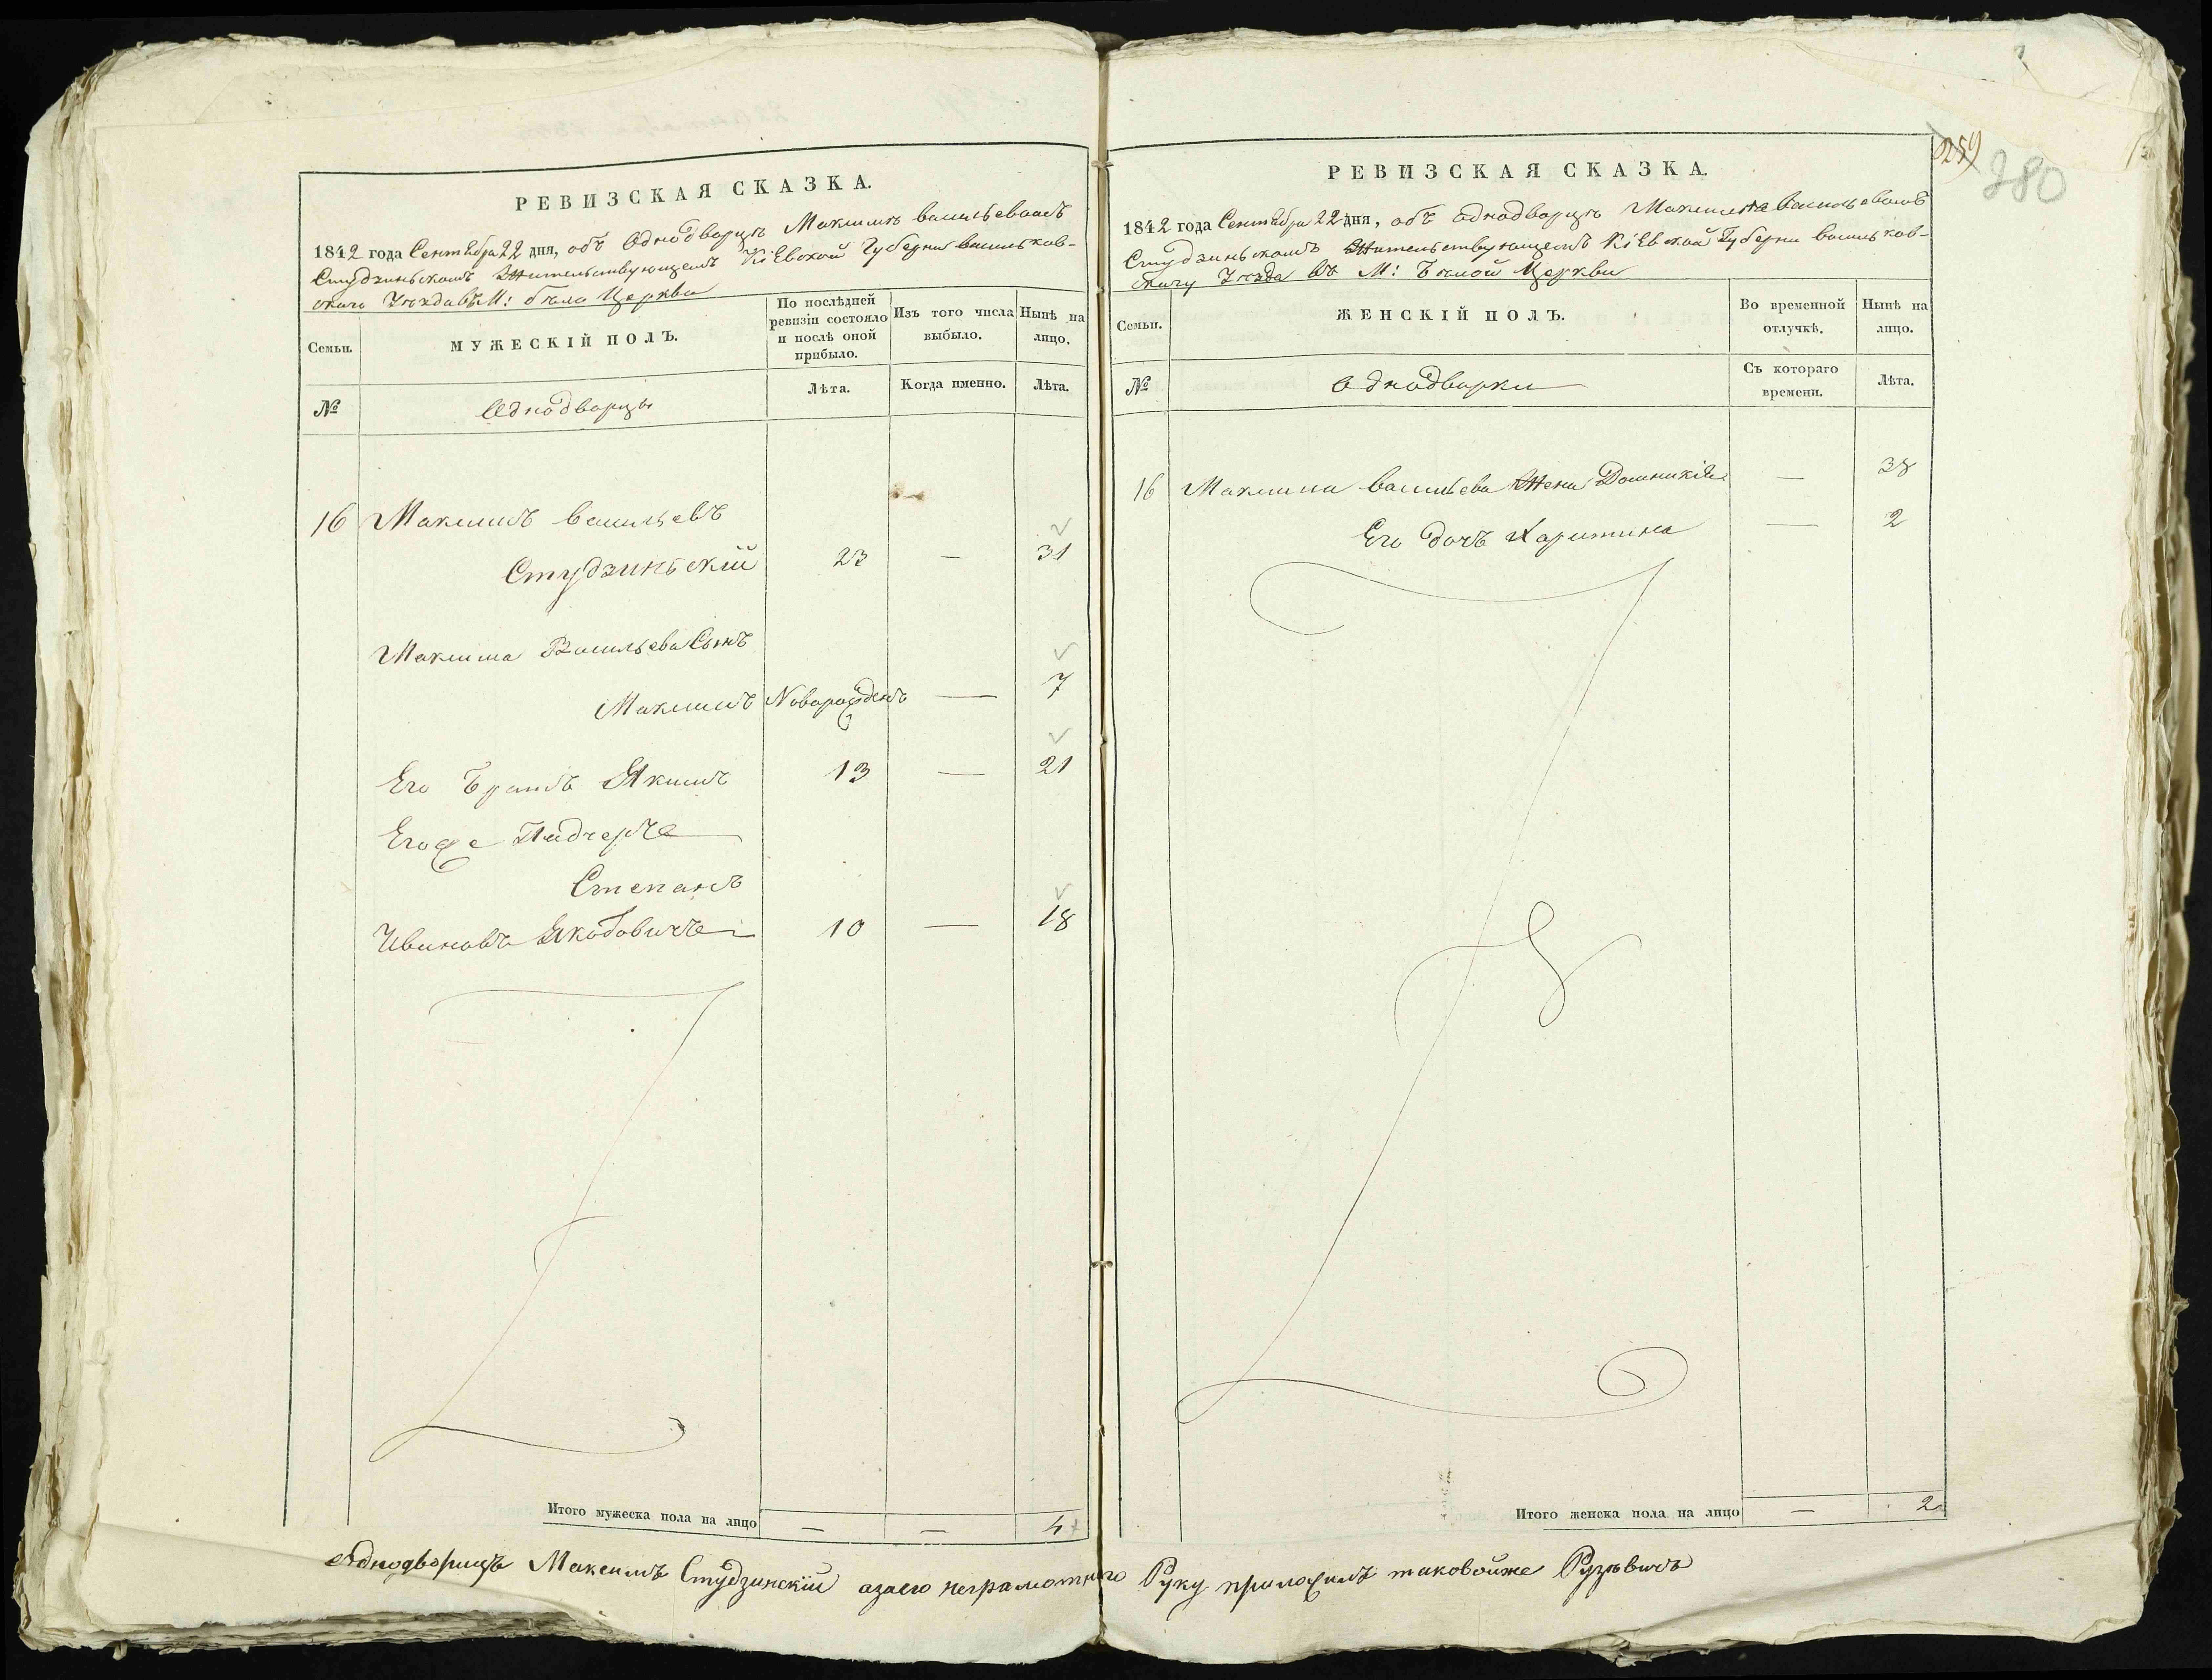 РЕВИЗСКАЯ СКАЗКА.
1842 года Сентября 22 дня, объ Однодворцѣ Максимѣ Васильевомъ
Студзиньскомъ Жительствующемъ Кіевской Губерни Васильков-
скаго Уѣзда въ М: бѣло Церкви
Семьи.
МУЖЕСКІЙ ПОЛЪ.
По послѣдней ревизіи состояло и послѣ оной прибыло.
Изъ того числа выбыло.
Нынѣ на лицо.
№
Однодворцы
Лѣта.
Когда именно.
Лѣта.
16 Максимъ Васильевъ
Студзиньскій 23 — 31
Максима Васильева Сынъ
Максимъ Новорожденъ — 7
Его Братъ Якимъ 13 — 21
Егоже
Степанъ
Ивановъ Якубовичъ 10 — 18
Итого мужеска пола на лицо — — 4
РЕВИЗСКАЯ СКАЗКА.
1842 года Сентября 22 дня, объ однодворцѣ Максимѣ Васильевомъ
Студзиньскомъ Жительствующемъ Кіевской Губерни Васильков-
скаго Уѣзда въ М: Бѣлой Церкви
Семьи.
ЖЕНСКІЙ ПОЛЪ.
Во временной отлучкѣ.
Нынѣ на лицо.
№
Однодворки
Съ котораго времени.
Лѣта.
16 Максима Васильева Жена Домникія — 38
Его дочъ Харитина — 2
Итого женска пола на лицо — 2
259
280
Однодворицъ Максимъ Студзинскій азаего неграмотного Руку приложилъ таковойже